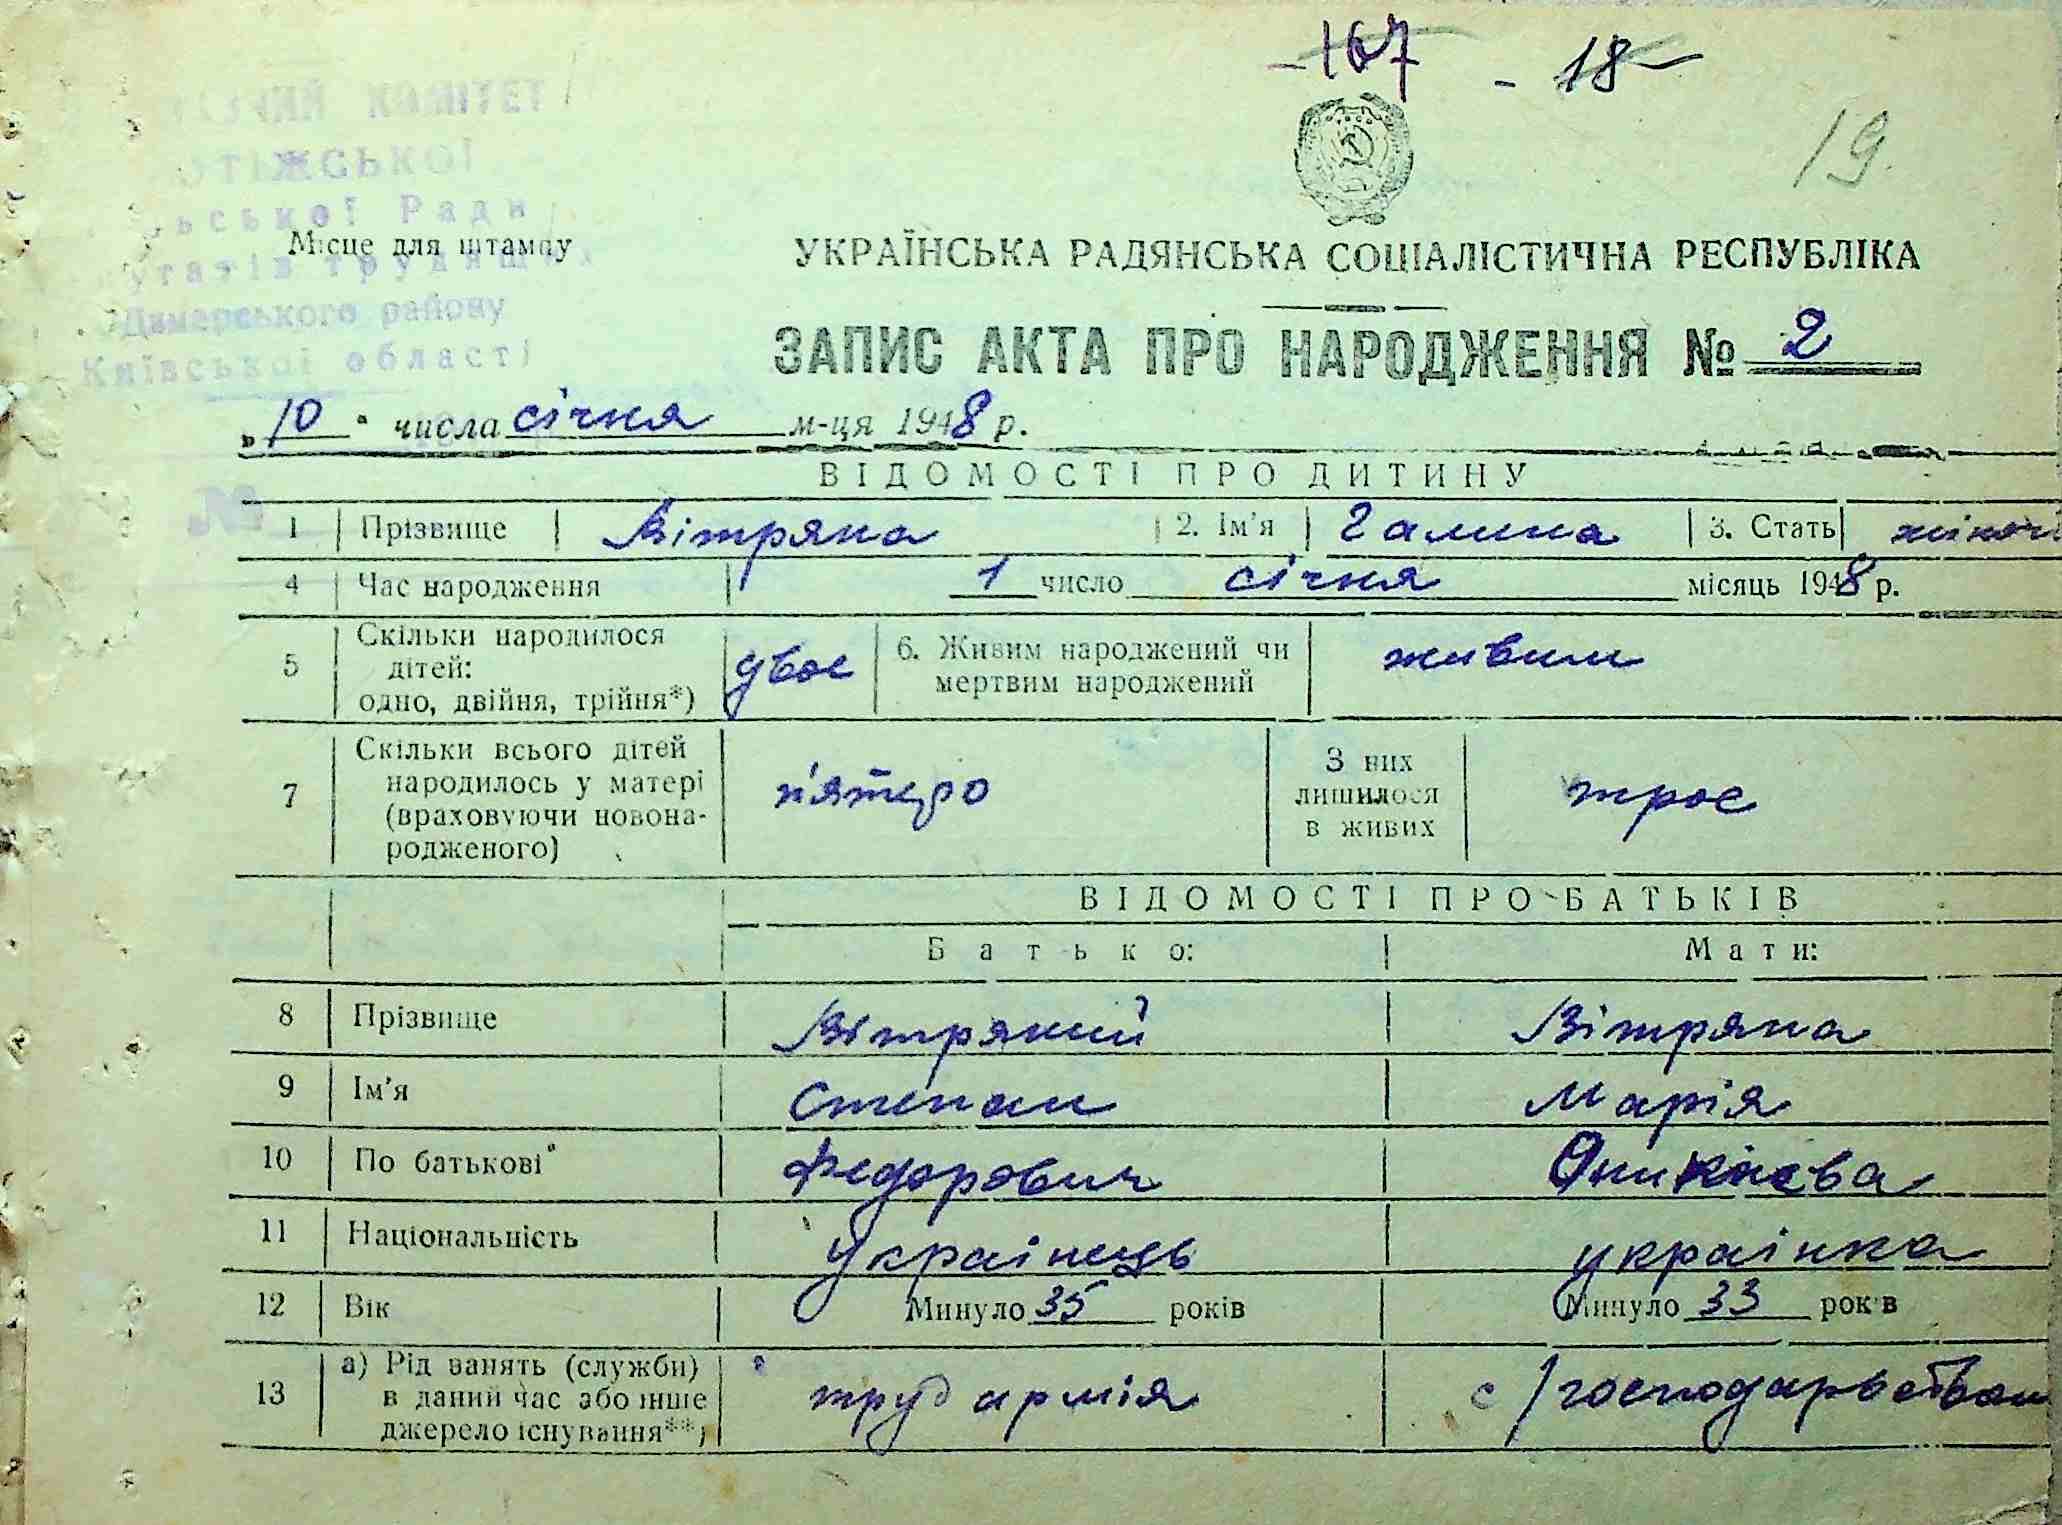 -167 - 18
19.
КОМІТЕТ
Ради
Димерського району
Київської області
Місце для штампу
УКРАЇНСЬКА РАДЯНСЬКА СОЦІАЛІСТИЧНА РЕСПУБЛІКА
ЗАПИС АКТА ПРО НАРОДЖЕННЯ № 2
„10“ числа січня м-ця 1948 р.
№
ВІДОМОСТІ ПРО ДИТИНУ
1 Прізвище Вітряна 2. Ім'я Галина 3. Стать жіноч
4 Час народження 1 число січня місяць 1948 р.
5 Скільки народилося дітей: одно, двійня, трійня*) двоє 6. Живим народжений чи мертвим народжений живим
7 Скільки всього дітей народилось у матері (враховуючи новонародженого) п'ятеро З них лишилося в живих троє
ВІДОМОСТІ ПРО БАТЬКІВ
Батько: Мати:
8 Прізвище Вітряний Вітряна
9 Ім'я Степан Марія
10 По батькові Федорович
11 Національність українець українка
12 Вік Минуло 35 років Минуло 33 років
13 а) Рід занять (служби) в даний час або інше джерело існування**) труд армія с/господарьством